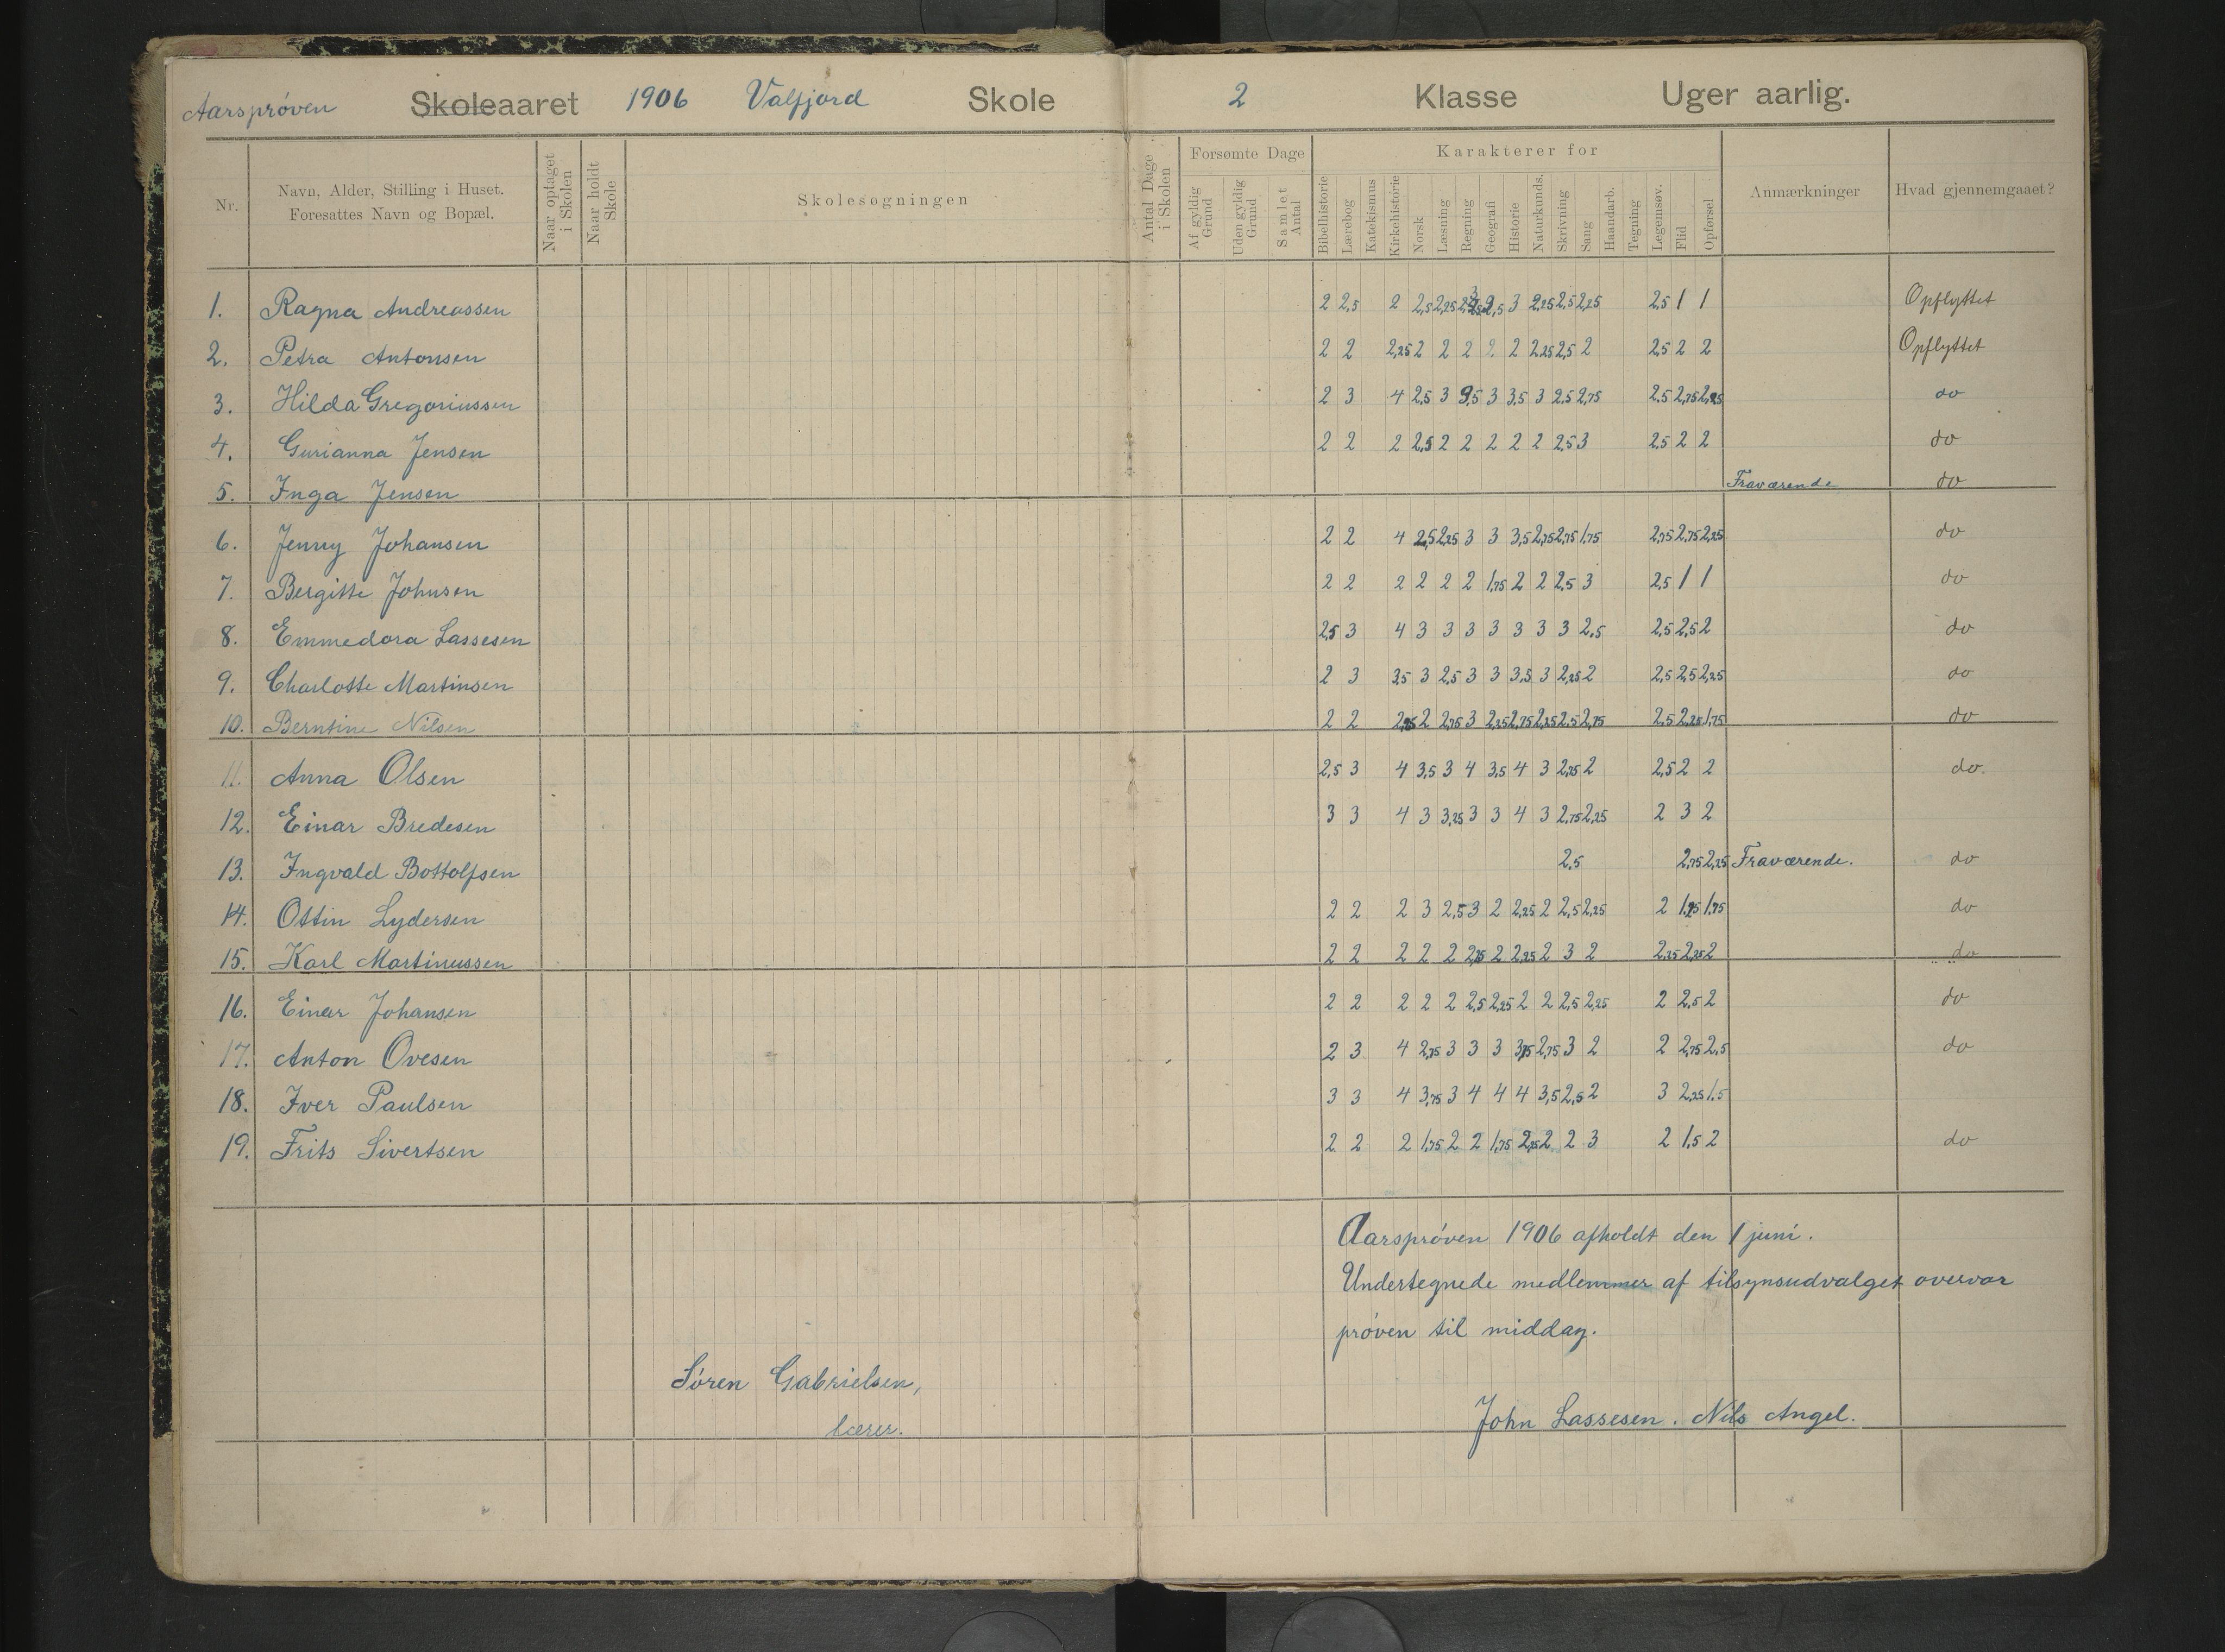 Aarsprøven Skoleaaret 1906 Valfjord Skole 2 Klasse Uger aarlig.
Nr.
Navn, Alder, Stilling i Huset.
Foresattes Navn og Bopæl.
Naar optaget i Skolen
Naar holdt Skole
Skolesøgningen
Antal Dage i Skolen
Forsømte Dage
Af gyldig Grund
Uden gyldig Grund
Samlet Antal
Karakterer for
Bibelhistorie
Lærebog
Katekismus
Kirkehistorie
Norsk
Læsning
Regning
Geografi
Historie
Naturkunds.
Skrivning
Sang
Haandarb.
Tegning
Legemsøv.
Flid
Opførsel
Anmærkninger
Hvad gjennemgaaet?
1. Ragna Andreassen 2 2,5 2 2,5 2,25 3 2,25 2,5 2,25 2,5 1 1 Opflyttet
2. Petra Antonsen 2 2 2,25 2 2 2 2 2 2,25 2,5 2 2,5 2 2 Opflyttet
3. Hilda Gregoriussen 2 3 4 2,5 3 3,5 3 3,5 3 2,5 2,75 2,5 2,75 2,25 do
4. Gurianna Jensen 2 2 2 2,5 2 2 2 2 2 2,5 3 2,5 2 2 do
5. Inga Jensen Fraværende do
6. Jenny Johansen 2 2 4 2,5 2,25 3 3 3,5 2,75 2,75 1,75 2,75 2,75 2,25 do
7. Bergitte Johnsen 2 2 2 2 2 2 1,75 2 2 2,5 3 2,5 1 1 do
8. Emmedora Lassesen 2,5 3 4 3 3 3 3 3 3 3 2,5 2,5 2,5 2 do
9. Charlotte Martinsen 2 3 3,5 3 2,5 3 3 3,5 3 2,25 2 2,5 2,5 2,25 do
10. Berntine Nilsen 2 2 2,25 2 2,75 3 2,25 2,75 2,25 2,5 2,75 2,5 2,25 1,75 do
11. Anna Olsen 2,5 3 4 3,5 3 4 3,5 4 3 2,75 2 2,5 2 2 do.
12. Einar Bredesen 3 3 4 3 3,25 3 3 4 3 2,75 2,25 2 3 2
13. Ingvald Bottolfsen 2,5 2,75 2,25 Fraværende. do
14. Ottin Lydersen 2 2 2 3 2,5 3 2 2,25 2 2,5 2,25 2 1,75 1,75 do
15. Karl Martinussen 2 2 2 2 2 2,25 2 2,25 2 3 2 2,25 2,25 2 do
16. Einar Johansen 2 2 2 2 2 2,5 2,25 2 2 2,5 2,25 2 2,5 2 do
17. Anton Ovesen 2 3 4 2,75 3 3 3 3,75 2,75 3 2 2 2,75 2,5 do
18. Iver Paulsen 3 3 4 3,75 3 4 4 4 3,5 2,5 2 3 2,25 1,5
19. Frits Sivertsen 2 2 2 1,75 2 2 1,75 2,25 2 2 3 2 1,5 2 do
Aarsprøven 1906 afholdt den 1 juni.
Undertegnede medlemmer af tilsynsudvalget overvar
prøven til middag.
Søren Gabrielsen,
lærer.
John Lassesen. Nils Angel.